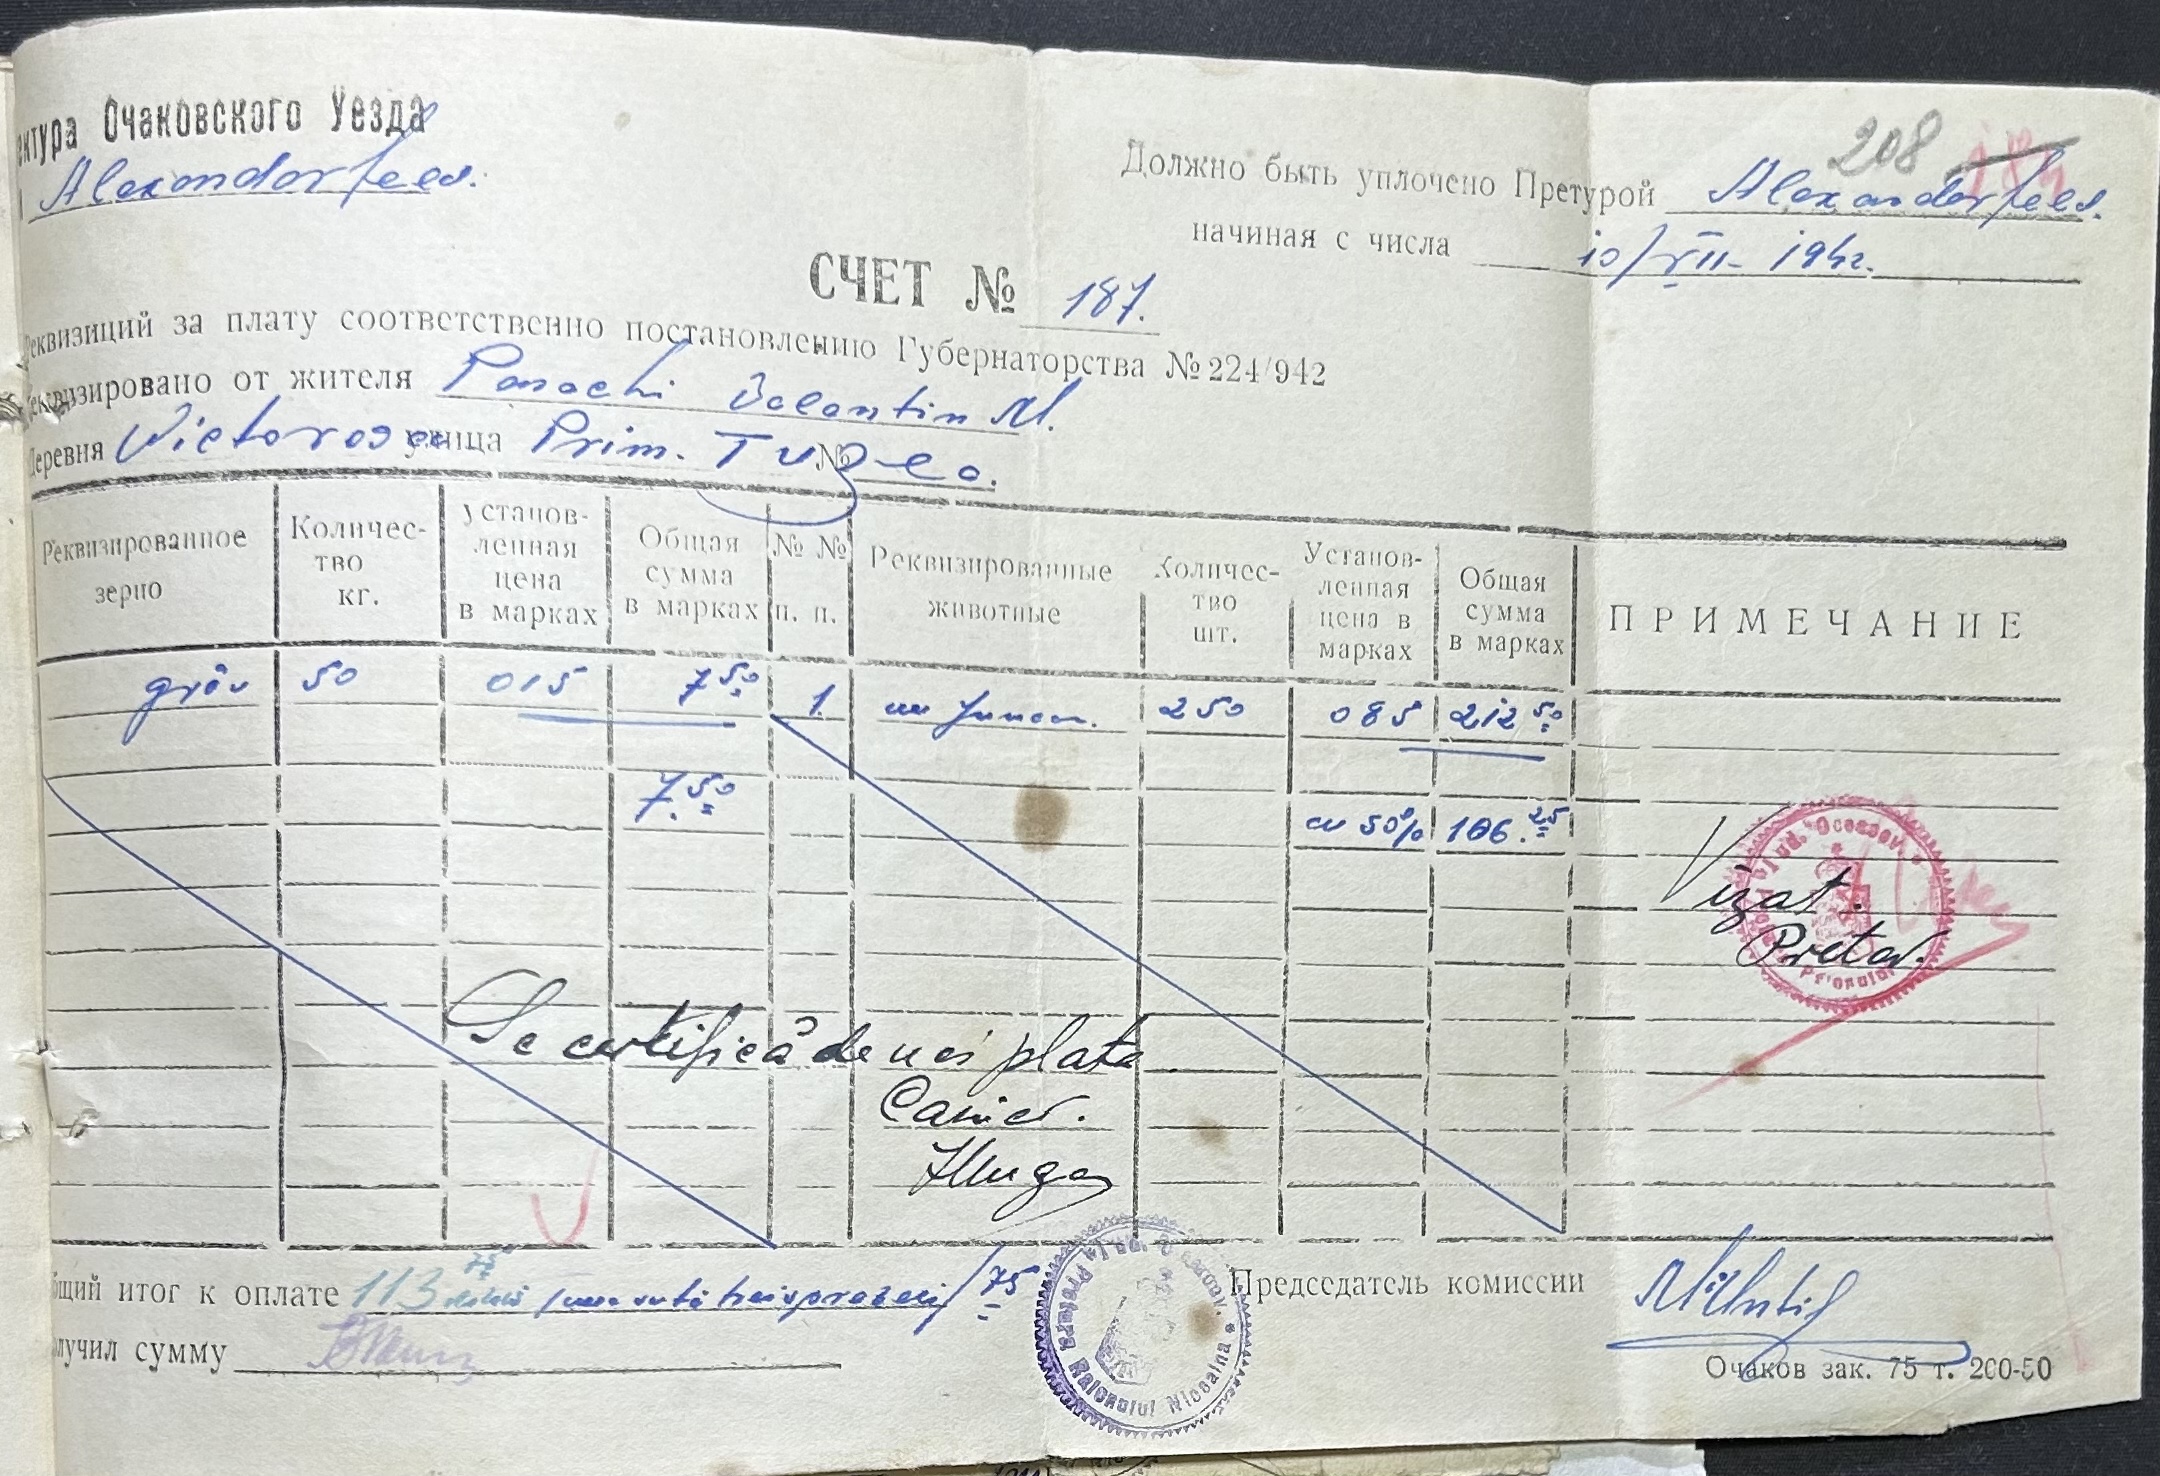 ектура Очаковского Уезда
Alexandorfeld.
208
Должно быть уплочено Претурой Alexandorfeld.
начиная с числа 10/VII- 1942.
СЧЕТ № 187.
Реквизиций за плату соответственно постановлению Губернаторства № 224/942
Реквизировано от жителя Panachi Valentin M.
Деревня улица Prim. Tuzla. №
Реквизированное зерно
Количес-тво кг.
установ-ленная цена в марках
Общая сумма в марках
№ № п. п.
Реквизированные животные
Количес-тво шт.
Установ-ленная цена в марках
Общая сумма в марках
ПРИМЕЧАНИЕ
grâu 50 015 7 50 1. un juncan. 250 085 212 50
7. 50
cu 50% 106. 25
Vizat.
Pretor.
Se certifică de noi plata
Casier.
общий итог к оплате 113 75 75
получил сумму
Председатель комиссии
Pretura Raionului
Очаков зак. 75 т. 200-50